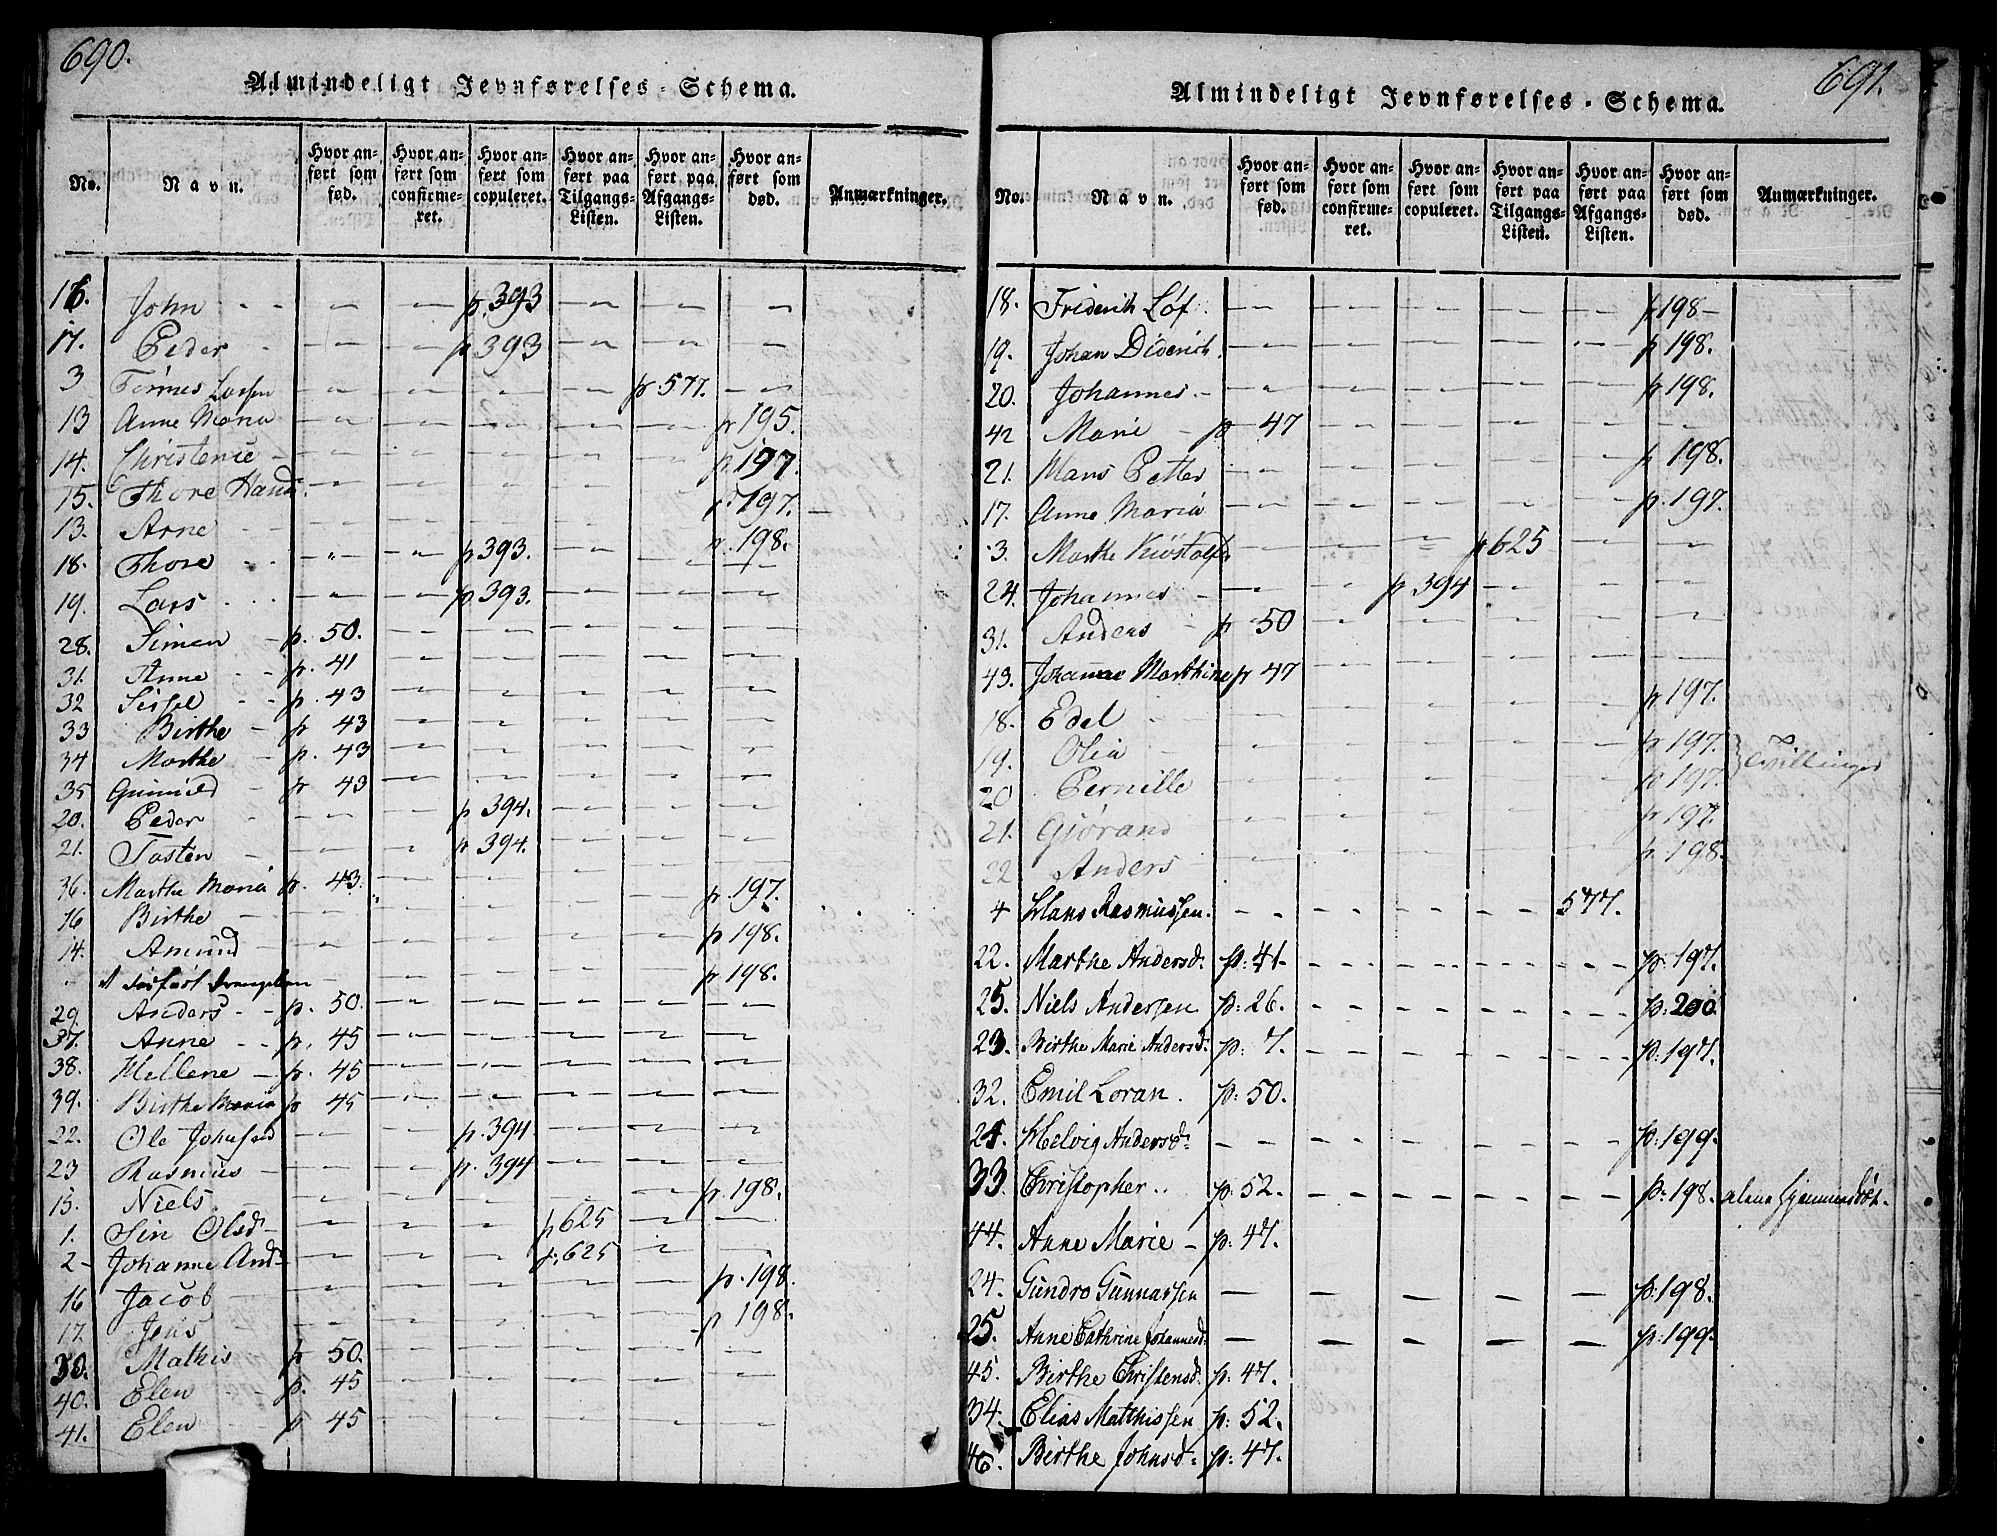 690.
Almindeligt Jevnførelses-Schema.
No. | Navn. | Hvor anført som fød. | Hvor anført som confirmeret. | Hvor anført som copuleret. | Hvor anført paa Tilgangs-Listen. | Hvor anført paa Afgangs-Listen. | Hvor anført som død. | Anmærkninger.
16. John - - - - p. 393 - - -
17. Peder - - - p 393 - - -
3 Tønnes Larsen - - - - p. 577. - -
13 Anne Maria - - - - - p 195.
14. Christense - - - - - p. 197.
15. Thore Hans - - - - - p. 197.
13. Arne - - - - - p. 198.
18. Thore - - - p 393. - - -
19. Lars - - - p. 393. - - -
28. Simen - p. 50. - - - - -
31. Anne - - p. 41 - - - - -
32 Sissel - - p. 43 - - - - -
33 Birthe - p 43 - - - - -
34 Marthe - p. 43 - - - - -
35 Gunnild - p 43 - - - - -
20. Peder - - - p 394. - - -
21. Tosten - - - p 394. - - -
36. Marthe Maria p. 43. - - - - p. 197.
16 Birthe - - - - - p 198.
14. Amund - - - - - p 198.
29. Anders - - p. 50. - - - - -
37. Anne - - p. 45 - - - - -
38. Hellene - p. 45 - - - - -
39. Birthe Maria p 45 - - - - -
22. Ole Johnsen - - p. 394 - - -
23 Rasmus - - - p. 394 - - -
15. Niels. - - - - - p. 198.
1. Siri Olsd - - - p 625 - -
2 - Johanne And - - - p. 625 - -
16 Jacob - - - - - p. 198.
17. Jens - - - - - p 198.
30. Mathis p 50. - - - - -
40. Elen - - p. 45 - - - - -
41. Elen - - p 45 - - - - -
691.
Almindeligt Jevnførelses-Schema.
No. | Navn. | Hvor anført som fød. | Hvor anført som confirmeret. | Hvor anført som copuleret. | Hvor anført paa Tilgangs-Listen. | Hvor anført paa Afgangs-Listen. | Hvor anført som død. | Anmærkninger.
18. Friderich Løf. - - - - - p 198-
19. Johan Diderich. - - - - - p 198.
20. Johannes. - - - - - - p 198.
42 Marie - p 47 - - - - -
21. Hans Petter - - - - - p 198.
17. Anne Maria - - - - - p. 197.
3. Marthe - - - p 625 - -
24. Johannes - - - p 394 - - -
31. Anders - p 50 - - - - -
43. Johanne Marthine p 47 - - - - -
18. Edel - - - - - - p 197.
19. Olia - - - - - - p 197. } Tvillinger
20 Pernille - - - - - p 197.
21. Giørand - - - - - p 197.
22 Anders - - - - - p. 198.
4 Hans Rasmussen. - - - - 577.
22. Marthe Andersd. p: 41- - - - - p: 197.
25. Niels Andersen p: 26. - - - - p: 200.
23. Birthe Marie Andersd: p: 7. - - - - p: 197.
32. Emil Loran. p: 50.
24. Helvig Andersd: - - - - - p: 199.
33. Christopher.. p: 52. - - - - p: 198. hjemmedøbt.
44. Anne Marie - p: 47.
24. Gundro Gunnarsen - - - - - p: 198.
25. Anne Cathrine Johannesd: - - - - - p: 199.
45. Birthe Christensd. p: 47.
34. Elias Matthissen p: 52.
46. Birthe Johnsd: p: 47.